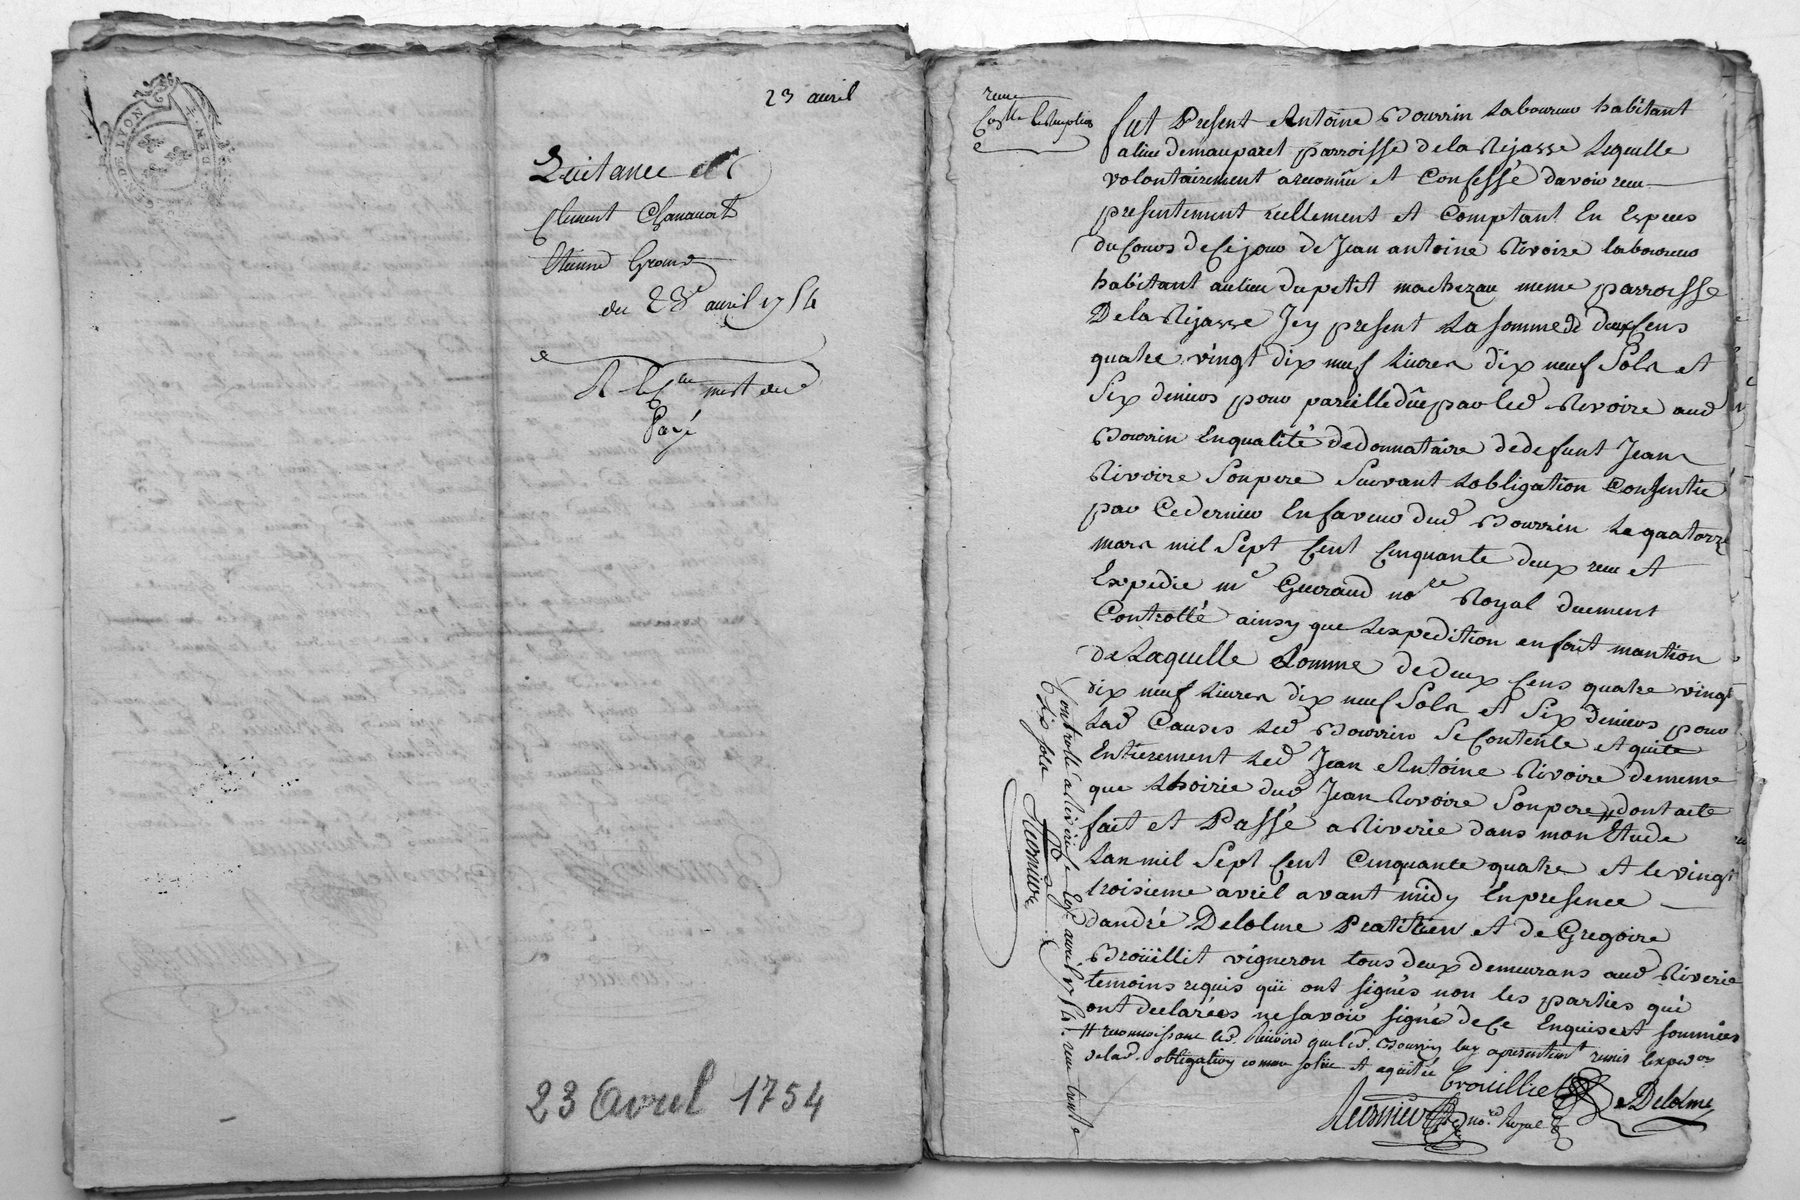 23 avril
Quitance
Clement Chanavat
Etienne
du 23e avril 1754
Payé
23 avril 1754
fut Present Antoine Bourrin Laboureur habitant
a lieu de mauparet parroisse de la Rejasse Lequelle
volontairement a reconnû et Confessé davoir reeu
presentement reellement et Comptant En Espeees
du Cours de Ce jour de Jean antoine Rivoire laboureur
habitant au lieu du petit machezau meme parroisse
De la Rejasse Jcy present La somme de deux Cens
quatre vingt dix neuf Livres dix neuf Sols et
Six deniers pour pareille dûe par led Rivoire aud
Bourrin En qualité de donnataire de defunt Jean
Rivoire Son pere Suivant Lobligation Consentie
par Ce dernier En faveur dud Bourrin Le quatorze
mars mil Sept Cent Cinquante deux reeu et
Expedie me Guiraud nore Royal duement
Controllé ainsy que Lexpedition en fait mantion
de Laquelle Somme de deux Cens quatre vingt
dix neuf Livres dix neuf Sols et Six deniers pour
Lad Causes Led Bourrin Se Contente et quite
Entierement Led Jean Antoine Rivoire de meme
que Lhoirie dud Jean Rivoire Son pere // dont acte
fait et Passé a Riverie dans mon Etude
Lan mil Sept Cent Cinquante quatre et le vingt
troisieme avril avant midy En presence
dandré Delolme Pratitien et de Gregoire
Broüillit vigneron tous deux demeurans aud Riverie
temoins requis qüi ont signés non les parties qui
ont declarées ne savoir signé de Ce Enquises et sommées
// reconnoissant led. Rivoire que led. Bourrin luy a presentemt remis lexpedon
de lad. obligation comme solüe et aquitée
brouillet Delolme
nore. Royal
Controllé a Riverie le avril 1754. reeu trente
six sols